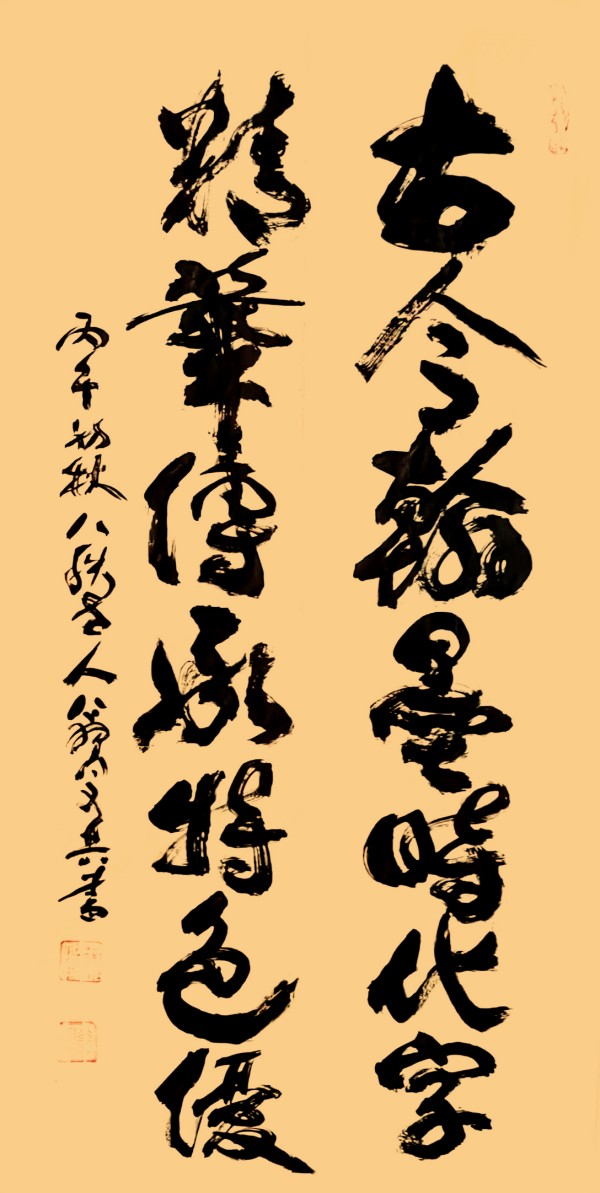 古今翰墨時代字
精華傳承特色優
丙午初秋八秩老人翁文其書